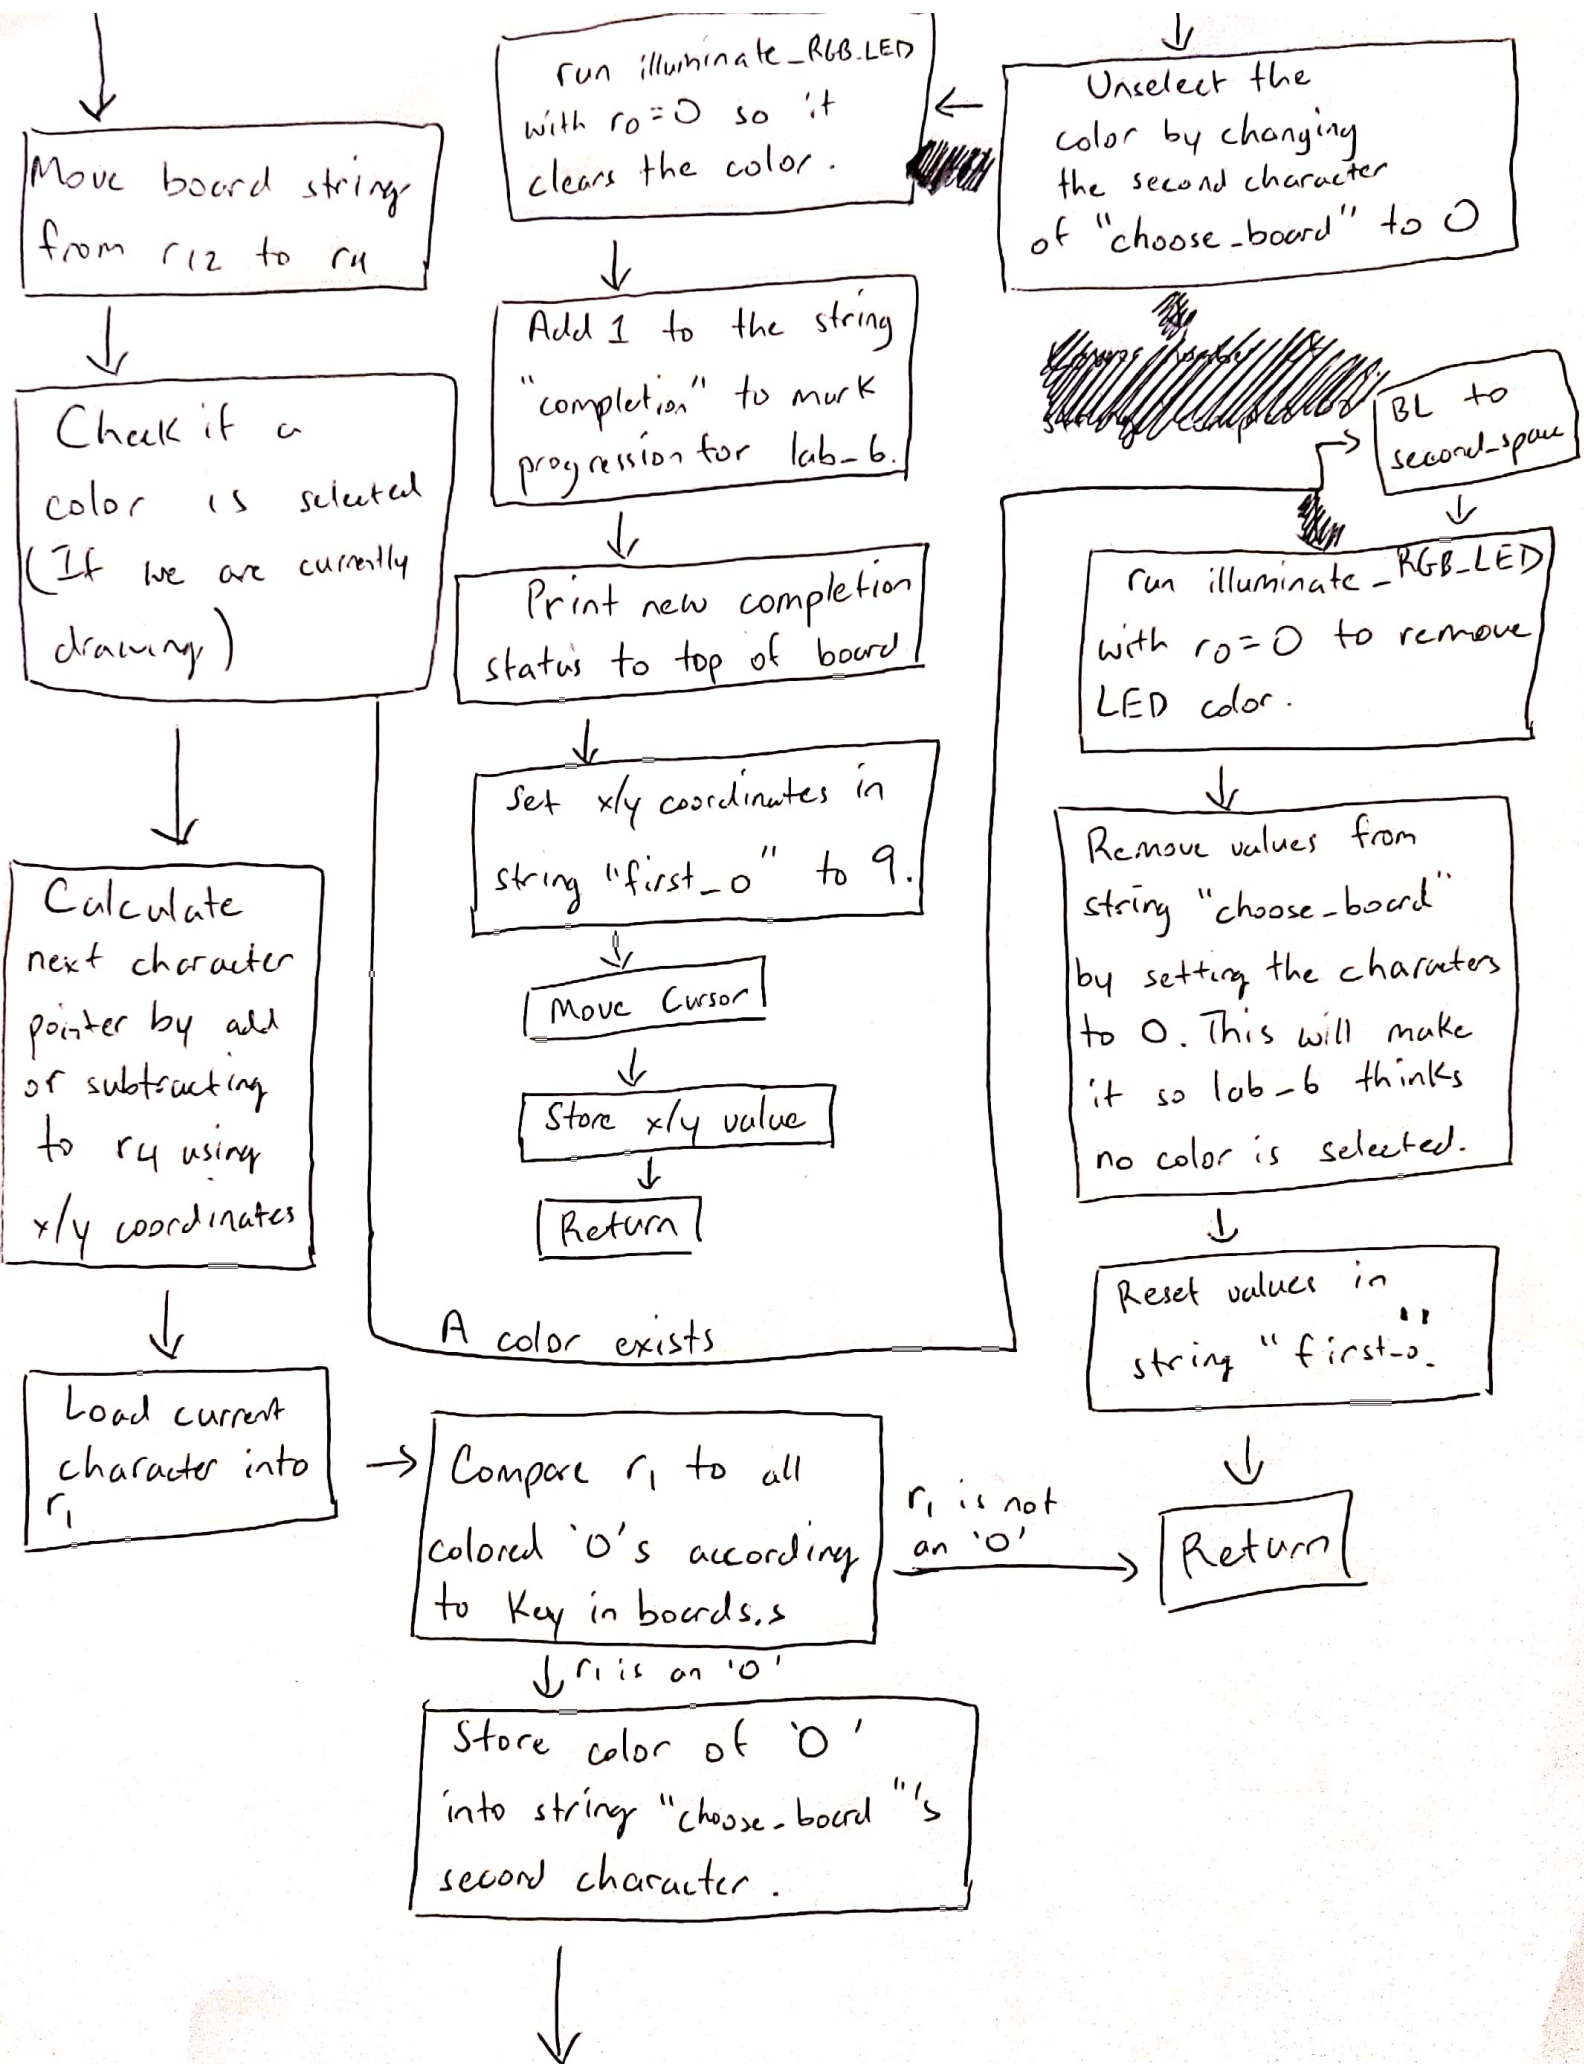 Move board string
from r12 to r4
Check if a
color is selected
(If we are currently
drawing)
Calculate
next character
pointer by add
or subtracting
to r4 using
x/y coordinates
Load current
character into
r1
run illuminate_RGB_LED
with r0=0 so it
clears the color.
Add 1 to the string
"completion" to mark
progression for lab_6.
Print new completion
status to top of board
Set x/y coordinates in
string "first_o" to 9.
Move Cursor
Store x/y value
Return
A color exists
Compare r1 to all
colored 'O's according
to Key in boards.s
r1 is not
an 'O'
r1 is an 'O'
Store color of 'O'
into string "choose_board"'s
second character.
Unselect the
color by changing
the second character
of "choose_board" to 0
BL to
second_space
run illuminate_RGB_LED
with r0=0 to remove
LED color.
Remove values from
string "choose_board"
by setting the characters
to 0. This will make
it so lab_6 thinks
no color is selected.
Reset values in
string "first_o".
Return